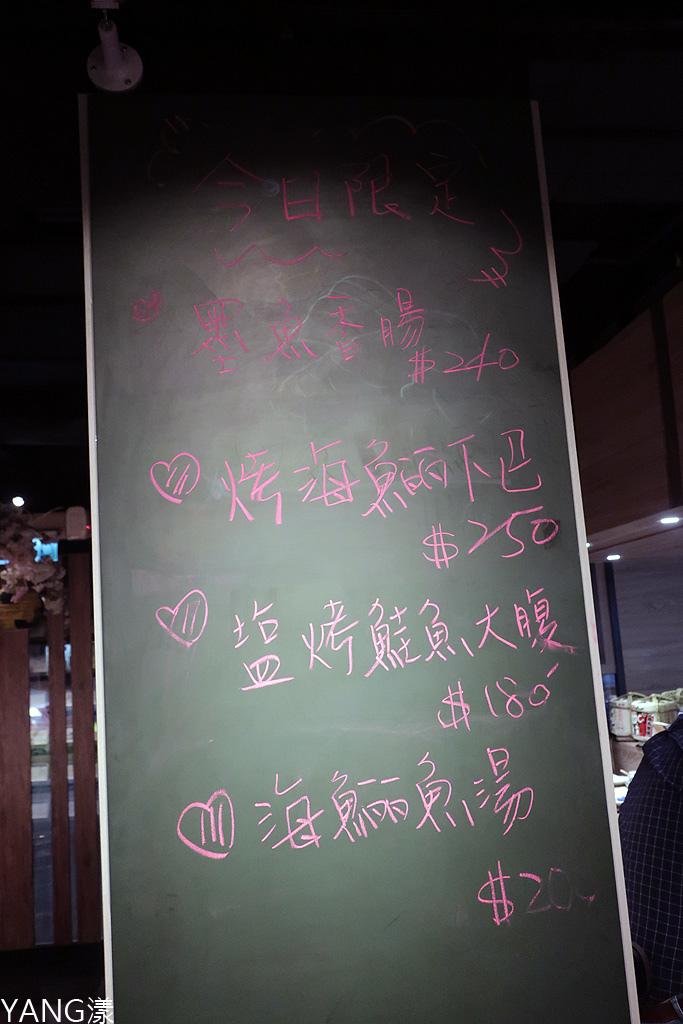 今日限定
墨魚香腸
$240
烤海鱺下巴
$250
塩烤鮭魚大腹
$180
海鱺魚湯
YANG漾